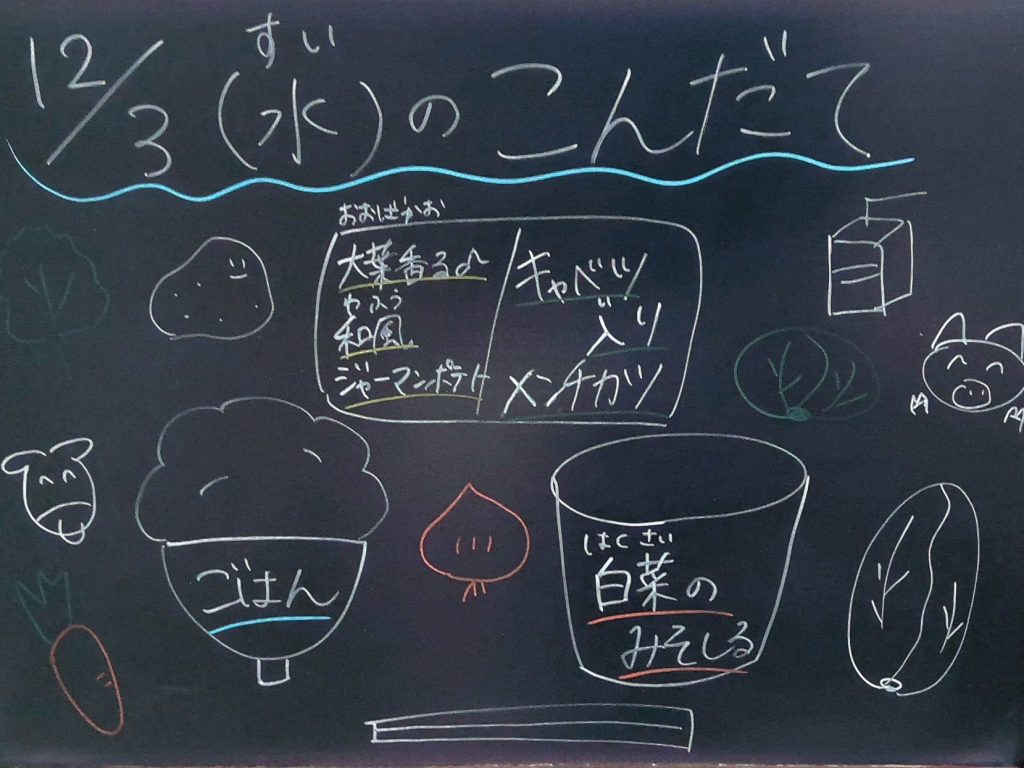 すい
12/3(水)のこんだて
おおばかお
大葉香る♪
わふう
和風
ジャーマンポテト
キャベツ
入り
メンチカツ
ごはん
はくさい
白菜の
みそしる